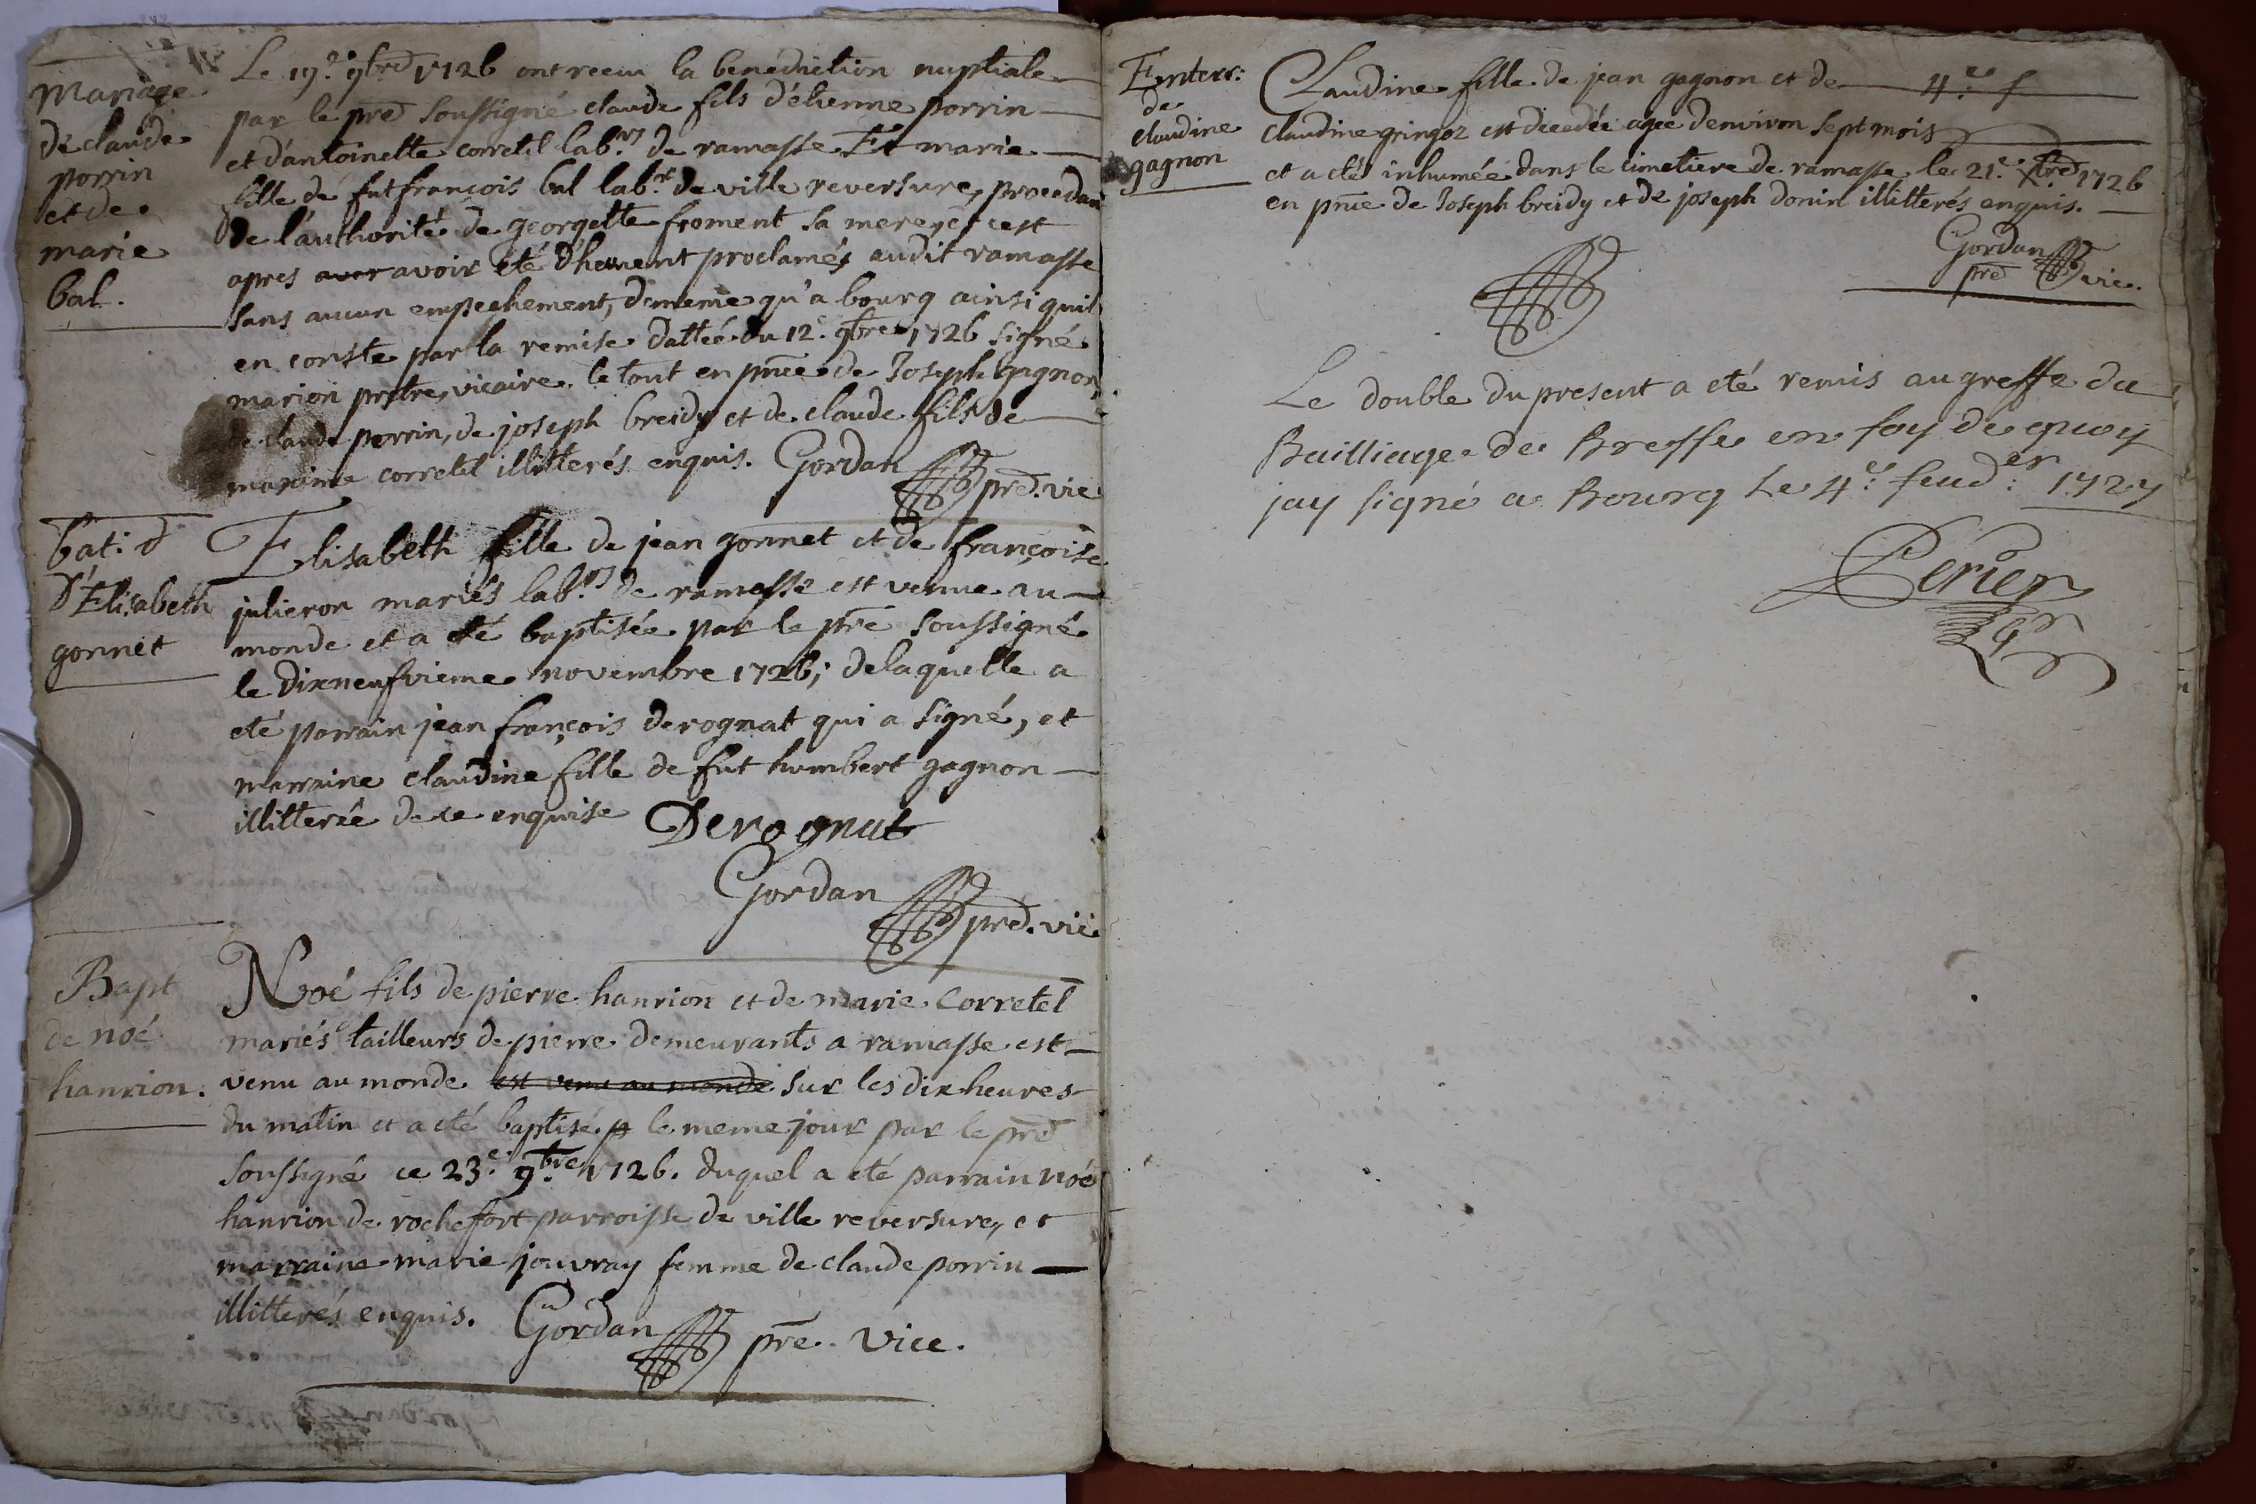 Mariage
de claude
porrin
et de
marie
bal.
Le 19.e 9bre 1726 ont receu la benediction nuptiale
par le pre soussigné claude fils d'étienne porrin
et d'antoinette corretel lab.rs de ramasse Et marie
fille de fut françois bal lab.r de ville reversure, procedant
de l'authorité de georgette froment sa mere, et cest
apres avoir eté dhement proclamés audit ramasse
sans aucun empechement, de meme qu'a bourg ainsi quil
en conste par la remise dattée du 12.e 9bre 1726 signé
marion prstre, vicaire. le tout en pnce de Joseph gagnon,
de claude perrin, de joseph breidy et de claude fils de
maxime corretel illitterés enquis. Gordan pre. vic
bat. d
d'Elisabeth
gonnet
Elisabeth fille de jean gonnet et de françoise
julieron mariés lab.rs de ramasse est venue au
monde et a eté baptisée par le pre soussigné
le dixneufvieme novembre 1726; de laquelle a
eté parrain jean françois derognat qui a signé, et
marraine claudine fille de fut humbert gagnon
illitterée de ce enquise Derognat
Gordan pre. vic
Bapt
de noé
hanrion.
Noé fils de pierre hanrion et de marie Corretel
mariés tailleurs de pierre demeurants a ramasse est
venu au monde est venu au monde sur les dix heures
du matin et a eté baptisé le meme jour par le pre
soussigné ce 23.e 9.bre 1726. duquel a eté parrain noé
hanrion de rochefort parroisse de ville reversure, et
marraine marie jouvray femme de claude porrin
illitterés enquis. Gordan pre. vice.
Enterr:
de
claudine
gagnon
Claudine fille de jean gagnon et de 4.e f
claudine gringoz est decedée agée denviron sept mois
et a eté inhumée dans le cimetiere de ramasse le 21.e Xbre 1726
en pnce de Joseph breidy et de joseph donin illitterés enquis.
Gordan
pre vic.
Le double du present a eté remis au greffe du
Bailliage de Bresse en foy de quoy
jay signé a Bourg Le 4.e feud.er 1727
Perier
Gr